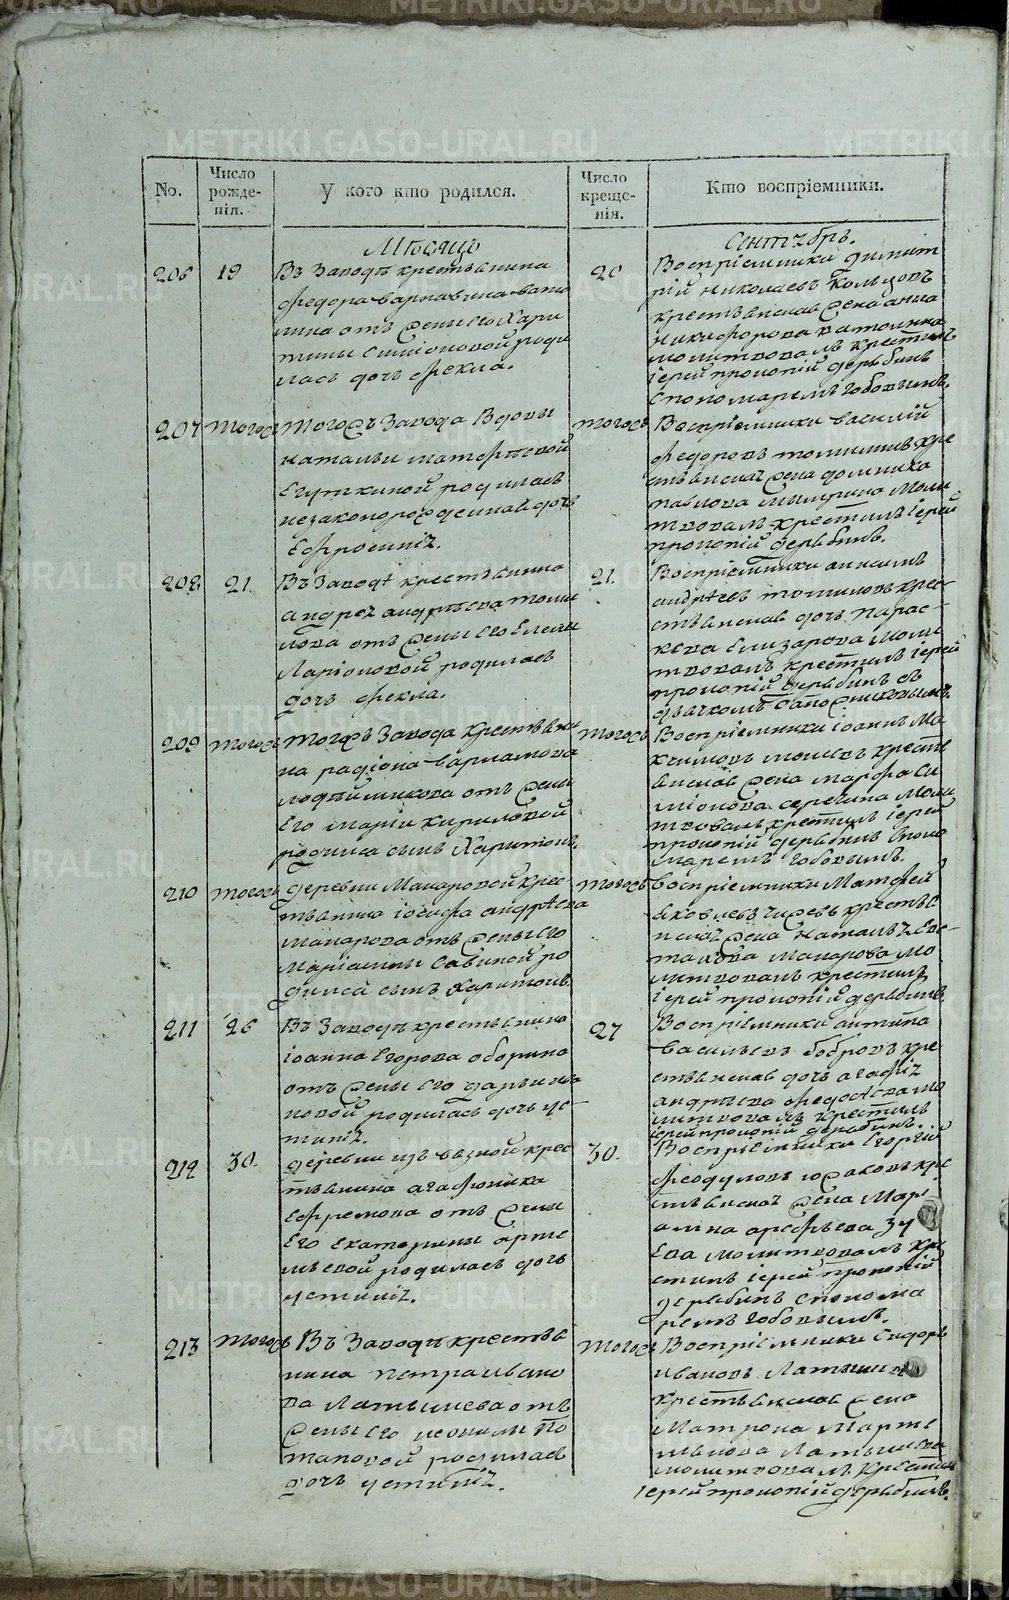 METRIKI.GASO-URAL.RU
No.
Число рожде-нія.
У кого кто родился.
Число креще-нія.
Кто воспріемники.
Мѣсяцъ
Сентябрь.
206
19
Въ Заводѣ крестьянина
федора варлавина вато
лина отъ жены его Хари
тины Симіоновой роди
лась дочь фекла.
20
Воспріемники димит
рій николаевъ Кольцовъ
крестьянская жена анна
никифорова ватолина
молитвовалъ крестилъ
іерей прокопій дерябинъ
с пономаремъ Бобовымъ.
207
тогожъ
Тогожъ Завода Вдовы
натальи матфѣевой
незаконорожденная дочь
Ефросинія.
тогожъ
Воспріемники василій
федоровъ томиловъ кре
стьянская жена домника
павлова Моли
твовалъ крестилъ іерей
прокопій дерябинъ.
208
21.
Въ Заводѣ крестьянина
андрея андрѣева томи
лова отъ жены его Елены
Ларіоновой родилась
дочь фекла.
21.
Воспріемники анисимъ
андрѣевъ томиловъ крес-
стьянская дочь парас-
кева Елизарова моли
твовалъ крестилъ іерей
прокопій дерябинъ съ
дьячкомъ Сапожниковымъ.
209
тогожъ
тогожъ Завода крестьяни
на радіона варламова
отъ жены
Его маріи кириловой
родился сынъ Харитонъ.
тогожъ
Воспріемники іоаннъ Ма
ѯимовъ крестья
янская жена марфа Си
міонова серегина Моли
твовалъ крестилъ іерей
прокопій дерябинъ с поно
маремъ Бобовымъ.
210
тогожъ
деревни Макаровой крес
тьянина іосифа андрѣева
макарова отъ жены его
Маріамны Савиной ро
дился сынъ Харитонъ.
тогожъ
воспріемники Матфей
яковлевъ крестья
нская жена наталья
Макарова мо
литвовалъ крестилъ
іерей прокопій дерябинъ.
211
26
Въ Заводѣ крестьянина
іоанна Егорова оборина
отъ жены его дарьи ива
новой родилась дочь ус-
тинія.
27
Воспріемники антипа
васильевъ бобровъ кре
стьянская дочь агафія
андрѣева федосѣева мо
литвовалъ крестилъ
іерей прокопій дерябинъ.
212
30.
деревни крес
тьянина агафоника
Ефремова отъ жены
Его екатерины арте
мьевой родилась дочь
устинія.
30.
Воспріемники Георгій
феодуловъ юдаковъ кре
стьянская жена Мар
арефьева
молитвовалъ кре
стилъ іерей прокопій
дерябинъ с понома
ремъ Бобовымъ.
213
тогожъ
Въ Заводѣ крестья
нина петра ивано
ва Латышева отъ
жены его леониллы По
таповой родилась
дочь устинія.
тогожъ
Воспріемники Сидоръ
ивановъ Латышевъ
крестьянская жена
Матрона Марте
мьянова Латышева
молитвовалъ крестилъ
іерей прокопій дерябинъ.